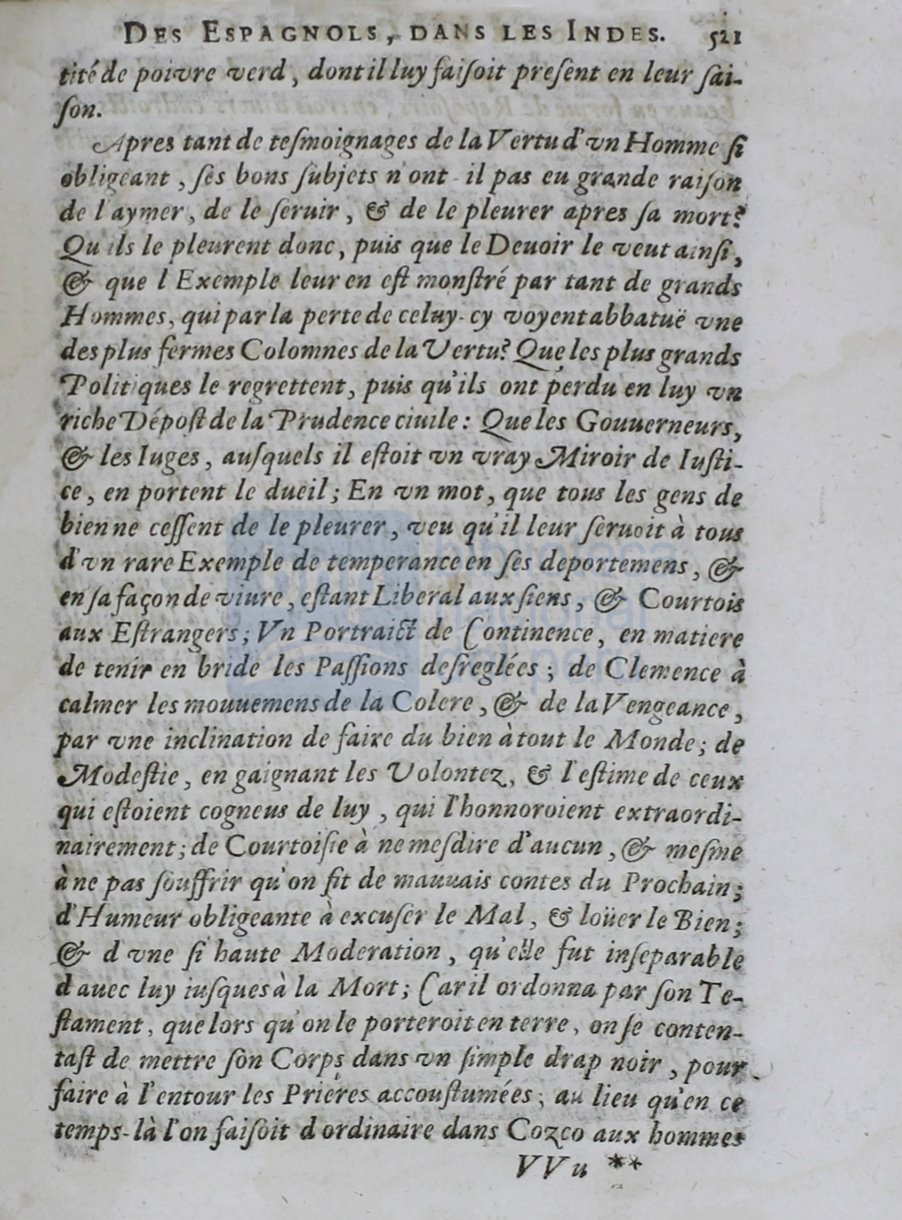 DES ESPAGNOLS, DANS LES INDES. 521
tité de poivre verd, dont il luy faiſoit preſent en leur ſai-
ſon.
Apres tant de teſmoignages de la Vertu d'vn Homme ſi
obligeant, ſes bons ſubjets n'ont-il pas eu grande raiſon
de l'aymer, de le ſeruir, & de le pleurer apres ſa mort?
Qu'ils le pleurent donc, puis que le Deuoir le veut ainſi,
& que l'Exemple leur en eſt monſtré par tant de grands
Hommes, qui par la perte de celuy-cy voyent abbatuë vne
des plus fermes Colomnes de la Vertu? Que les plus grands
Politiques le regrettent, puis qu'ils ont perdu en luy vn
riche Dépoſt de la Prudence ciuile: Que les Gouuerneurs,
& les Iuges, auſquels il eſtoit vn vray Miroir de Iuſti-
ce, en portent le dueil; En vn mot, que tous les gens de
bien ne ceſſent de le pleurer, veu qu'il leur ſeruoit à tous
d'vn rare Exemple de temperance en ſes deportemens, &
en ſa façon de viure, eſtant Liberal aux ſiens, & Courtois
aux Eſtrangers; Vn Portraict de Continence, en matiere
de tenir en bride les Paſſions deſreglées; de Clemence à
calmer les mouuemens de la Colere, & de la Vengeance,
par vne inclination de faire du bien à tout le Monde; de
Modeſtie, en gaignant les Volontez, & l'eſtime de ceux
qui eſtoient cogneus de luy, qui l'honnoroient extraordi-
nairement; de Courtoiſie à ne meſdire d'aucun, & meſme
à ne pas ſouffrir qu'on fit de mauuais contes du Prochain;
d'Humeur obligeante à excuſer le Mal, & loüer le Bien;
& d'vne ſi haute Moderation, qu'elle fut inſeparable
d'auec luy iuſques à la Mort; Car il ordonna par ſon Te-
ſtament, que lors qu'on le porteroit en terre, on ſe conten-
taſt de mettre ſon Corps dans vn ſimple drap noir, pour
faire à l'entour les Prieres accouſtumées; au lieu qu'en ce
temps-là l'on faiſoit d'ordinaire dans Cozco aux hommes
VVu **